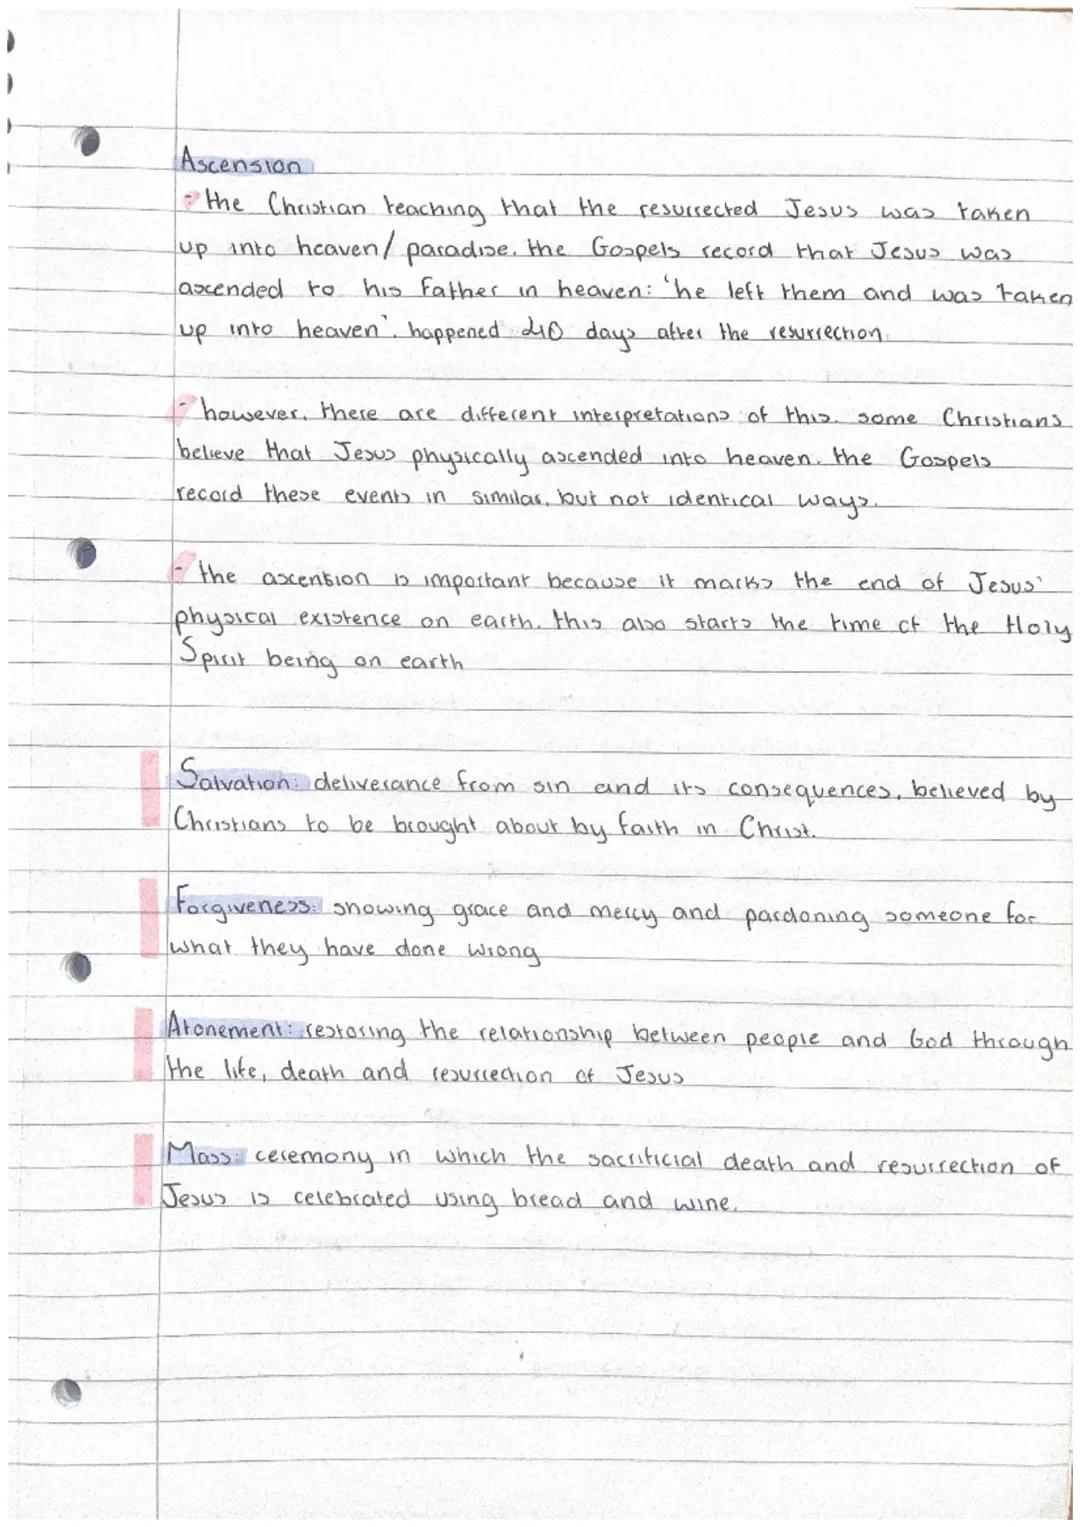 Ascension
- the Christian teaching that the resurrected Jesus was taken
up into heaven/ paradise. the Gospels record that Jesus was
ascended to his Father in heaven: 'he left them and was taken
up into heaven'. happened 40 days after the resurrection.
- however, there are different interpretations of this. some Christians
believe that Jesus physically ascended into heaven. the Gospels
record these events in similar, but not identical ways.
- the ascention is important because it marks the end of Jesus'
physical existence on earth. this also starts the time of the Holy
Spirit being on earth
Salvation: deliverance from sin and its consequences, believed by
Christians to be brought about by faith in Christ.
Forgiveness: showing grace and mercy and pardoning someone for
what they have done wrong
Atonement: restoring the relationship between people and God through
the life, death and resurrection of Jesus
Mass: ceremony in which the sacrificial death and resurrection of
Jesus is celebrated using bread and wine.